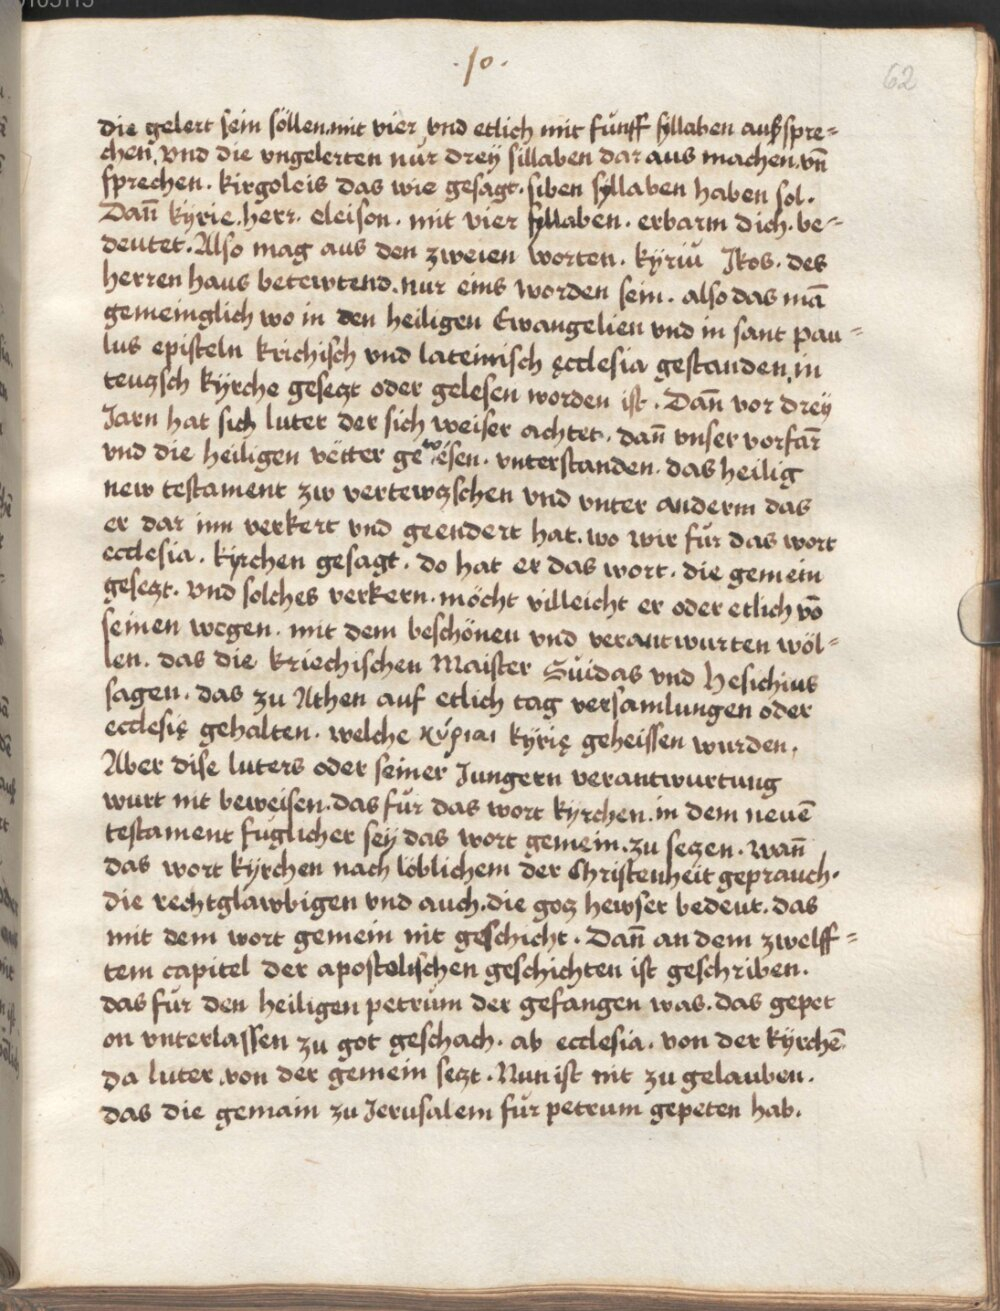 .10.
62
die gelert sein söllen. mit vier vnd etlich mit fünff syllaben außspre=
chen, vnd die vngelerten nur drey sillaben dar aus machen. vn̄
sprechen. kirgoleis das wie gesagt. siben syllaben haben sol.
Dan̄ kÿrie. herr. eleison. mit vier syllaben. erbarm dich. be=
deutet. Also mag aus den zweien worten. kÿriu Jkos. des
herren haus betewtend. nur eins worden sein. also das mā
gemeinglich wo in den heiligen Ewangelien vnd in sant pau=
lus episteln krichisch vnd lateinisch ęcclesia gestanden, in
teuczsch kÿrche geseczt oder gelesen worden ist. Dan̄ vor dreÿ
Jarn hat sich luter der sich weiser achtet. dan̄ vnser vorfar̄
vnd die heiligen vëtter gewësen. vnterstanden. das heilig
new testament zw vertewczschen vnd vnter anderm das
er dar inn verkert vnd geendert hat. wo wir für das wort
ecclesia. kÿrchen gesagt. do hat er das wort. die gemein
geseczt. vnd solches verkern. möcht villeicht er oder etlich vō
seinen wegen. mit dem beschönen vnd verantwurten wöl=
len. das die kriechischen Maister Suidas vnd Hesichius
sagen. das zu Athen auf etlich tag versamlungen oder
ecclesię gehalten. welche κύριαι kÿrię geheissen wurden.
Aber dise luters oder seiner Jungern verantwurtung
wurt nit beweisen. das für das wort kyrchen. in dem neuē
testament fuglicher seÿ das wort gemein. zu seczen. wan̄
das wort kÿrchen nach löblichem der Christenheit geprauch.
die rechtglawbigen vnd auch. die gocz hewser bedeut. das
mit dem wort gemein nit geschicht. Dan̄ an dem zwelff=
tem capitel der apostolischen geschichten ist geschriben.
das für den heiligen petrum der gefangen was. das gepet
on vnterlassen zu got geschach. ab ecclesia. von der kÿrchē
da luter. von der gemein seczt. Nun ist nit zu gelauben.
das die gemain zu Jerusalem für petrum gepeten hab.